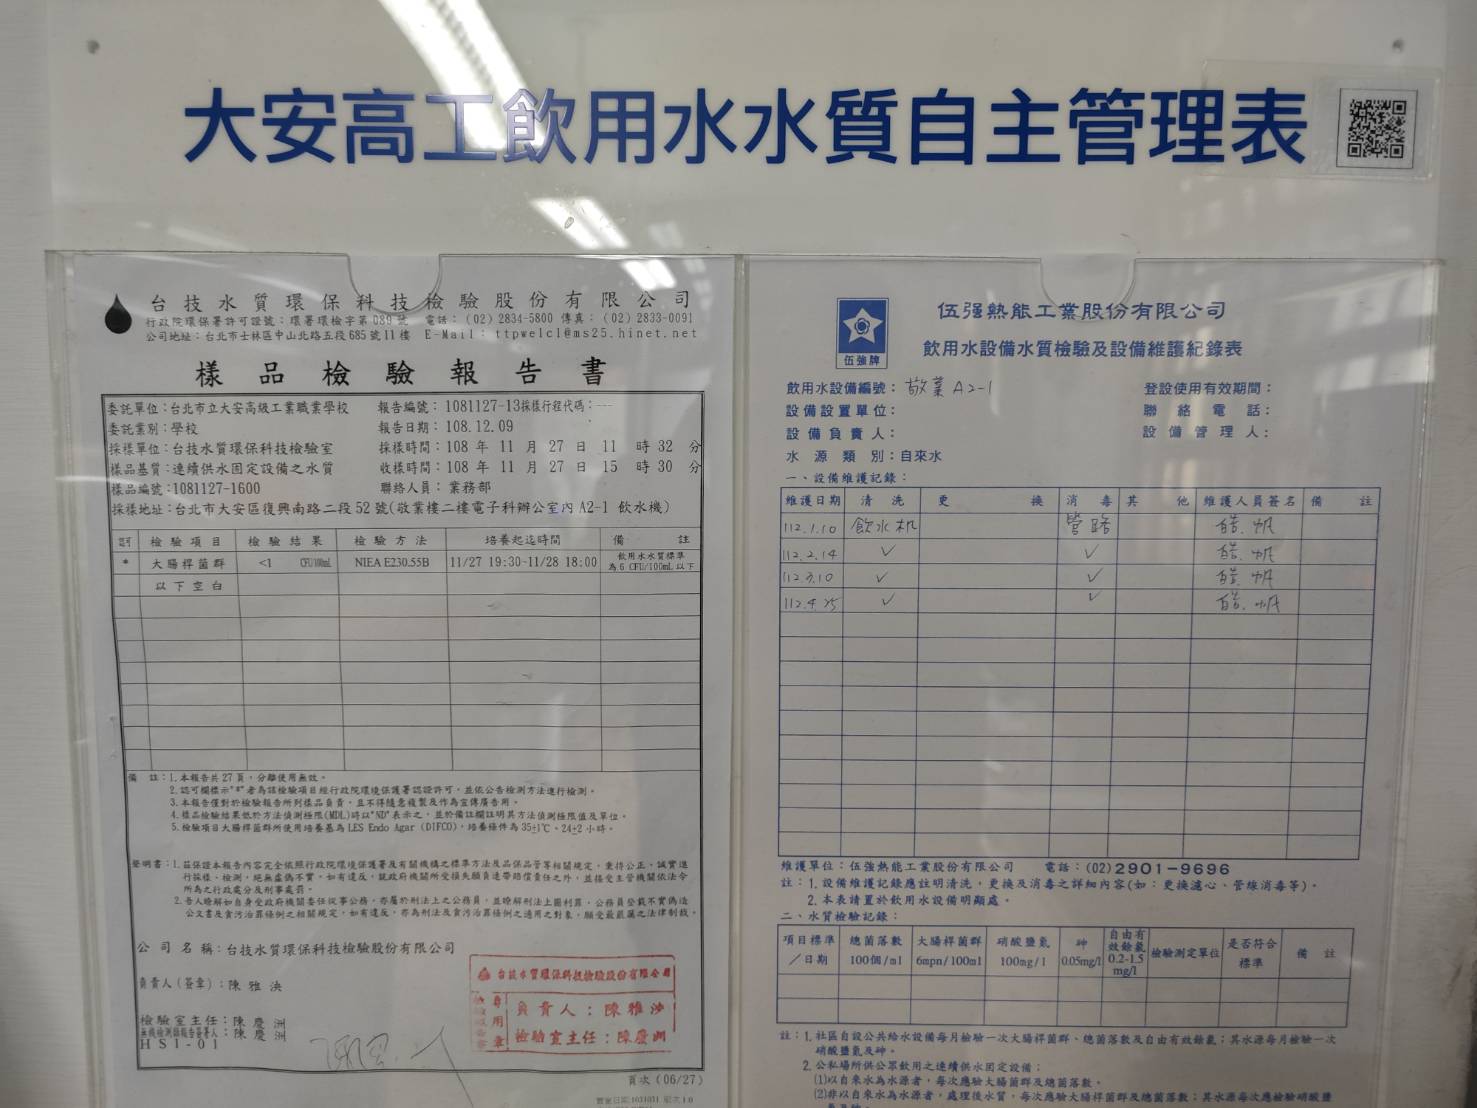 大安高工飲用水水質自主管理表
台技水質環保科技檢驗股份有限公司
行政院環保署許可證號：環署環檢字第 089 號 電話：(02) 2834-5800 傳真：(02) 2833-0091
公司地址：台北市士林區中山北路五段 685 號 11 樓 E-Mail：ttpwelcl@ms25.hinet.net
樣品檢驗報告書
委託單位：台北市立大安高級工業職業學校 報告編號：1081127-13 採樣行程代碼：---
委託業別：學校 報告日期：108.12.09
採樣單位：台技水質環保科技檢驗室 採樣時間：108 年 11 月 27 日 11 時 32 分
樣品基質：連續供水固定設備之水質 收樣時間：108 年 11 月 27 日 15 時 30 分
樣品編號：1081127-1600 聯絡人員：業務部
採樣地址：台北市大安區復興南路二段 52 號(敬業樓二樓電子科辦公室內 A2-1 飲水機)
認可 檢驗項目 檢驗結果 檢驗方法 培養起迄時間 備註
* 大腸桿菌群 <1 CFU/100mL NIEA E230.55B 11/27 19:30~11/28 18:00 飲用水水質標準
為 6 CFU/100mL 以下
以下空白
備 註：1.本報告共 27 頁，分離使用無效。
2.認可欄標示"*"者為該檢驗項目經行政院環境保護署認證許可，並依公告檢測方法進行檢測。
3.本報告僅對於檢驗報告所列樣品負責，且不得隨意複製及作為宣傳廣告用。
4.樣品檢驗結果低於方法偵測極限(MDL)時以"ND"表示之，並於備註欄註明其方法偵測極限值及單位。
5.檢驗項目大腸桿菌群所使用培養基為 LES Endo Agar (DIFCO)，培養條件為 35±1℃、24±2 小時。
聲明書：1.茲保證本報告內容完全依照行政院環境保護署及有關機構之標準方法及品保品管等相關規定，秉持公正、誠實進
行採樣、檢測，絕無虛偽不實，如有違反，就政府機關所受損失願負連帶賠償責任之外，並接受主管機關依法令
所為之行政處分及刑事處罰。
2.吾人瞭解如自身受政府機關委任從事公務，亦屬於刑法上之公務員，並瞭解刑法上圖利罪、公務員登載不實偽造
公文書及貪污治罪條例之相關規定，如有違反，亦為刑法及貪污治罪條例之適用之對象，願受最嚴厲之法律制裁。
公司名稱：台技水質環保科技檢驗股份有限公司
負責人(簽章)：陳雅泱
檢驗室主任：陳慶洲
無機檢測類報告簽署人：陳慶洲
HSI-01
台技水質環保科技檢驗股份有限公司
負責人：陳雅泱
檢驗室主任：陳慶洲
頁次 (06/27)
伍強牌
伍强熱能工業股份有限公司
飲用水設備水質檢驗及設備維護紀錄表
飲用水設備編號：敬業 A2-1 登設使用有效期間：
設備設置單位： 聯絡電話：
設備負責人： 設備管理人：
水源類別：自來水
一、設備維護記錄：
維護日期 清洗 更換 消毒 其他 維護人員簽名 備註
112.1.10 飲水机 管路
112.2.14 ✓ ✓
112.3.10 ✓ ✓
112.4.25 ✓ ✓
維護單位：伍強熱能工業股份有限公司 電話：(02)2901-9696
註：1.設備維護記錄應註明清洗，更換及消毒之詳細內容(如：更換濾心、管線消毒等)。
2.本表請置於飲用水設備明顯處。
二、水質檢驗記錄：
項目標準／日期 總菌落數 100個/ml 大腸桿菌群 6mpn/100ml 硝酸鹽氮 100mg/l 砷 0.05mg/l 自由有效餘氯 0.2-1.5 mg/l 檢驗測定單位 是否符合標準 備註
註：1.社區自設公共給水設備每月檢驗一次大腸桿菌群、總菌落數及自由有效餘氯；其水源每月檢驗一次
硝酸鹽氮及砷。
2.公私場所供公眾飲用之連續供水固定設備：
(1)以自來水為水源者，每次應驗大腸桿菌群及總菌落數。
(2)非以自來水為水源者，處理後水質，每次應驗大腸桿菌群及總菌落數；其水源每次應檢驗硝酸鹽